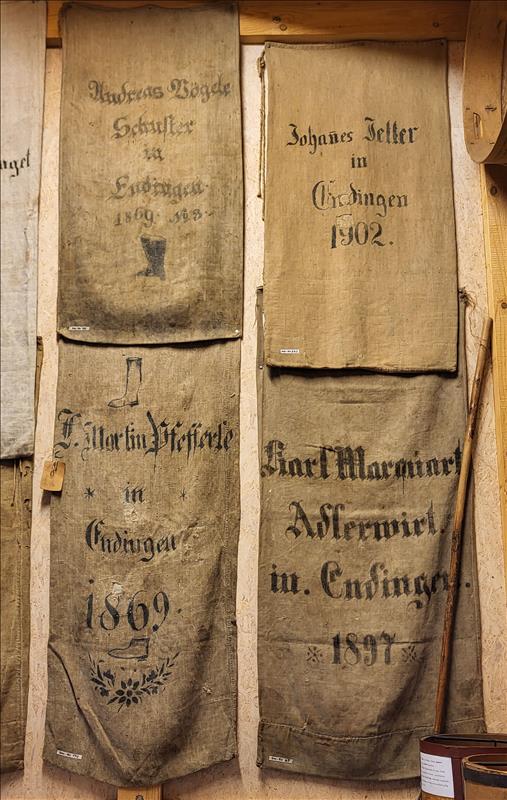 Andreas Vögele
Schuster
in
Endingen
1869. No 3.
Johañes Jetter
in
Endingen
1902.
F. Martin Pfefferle
in
Endingen
1869.
Karl Marquart
Adlerwirt.
in. Endingen.
1897